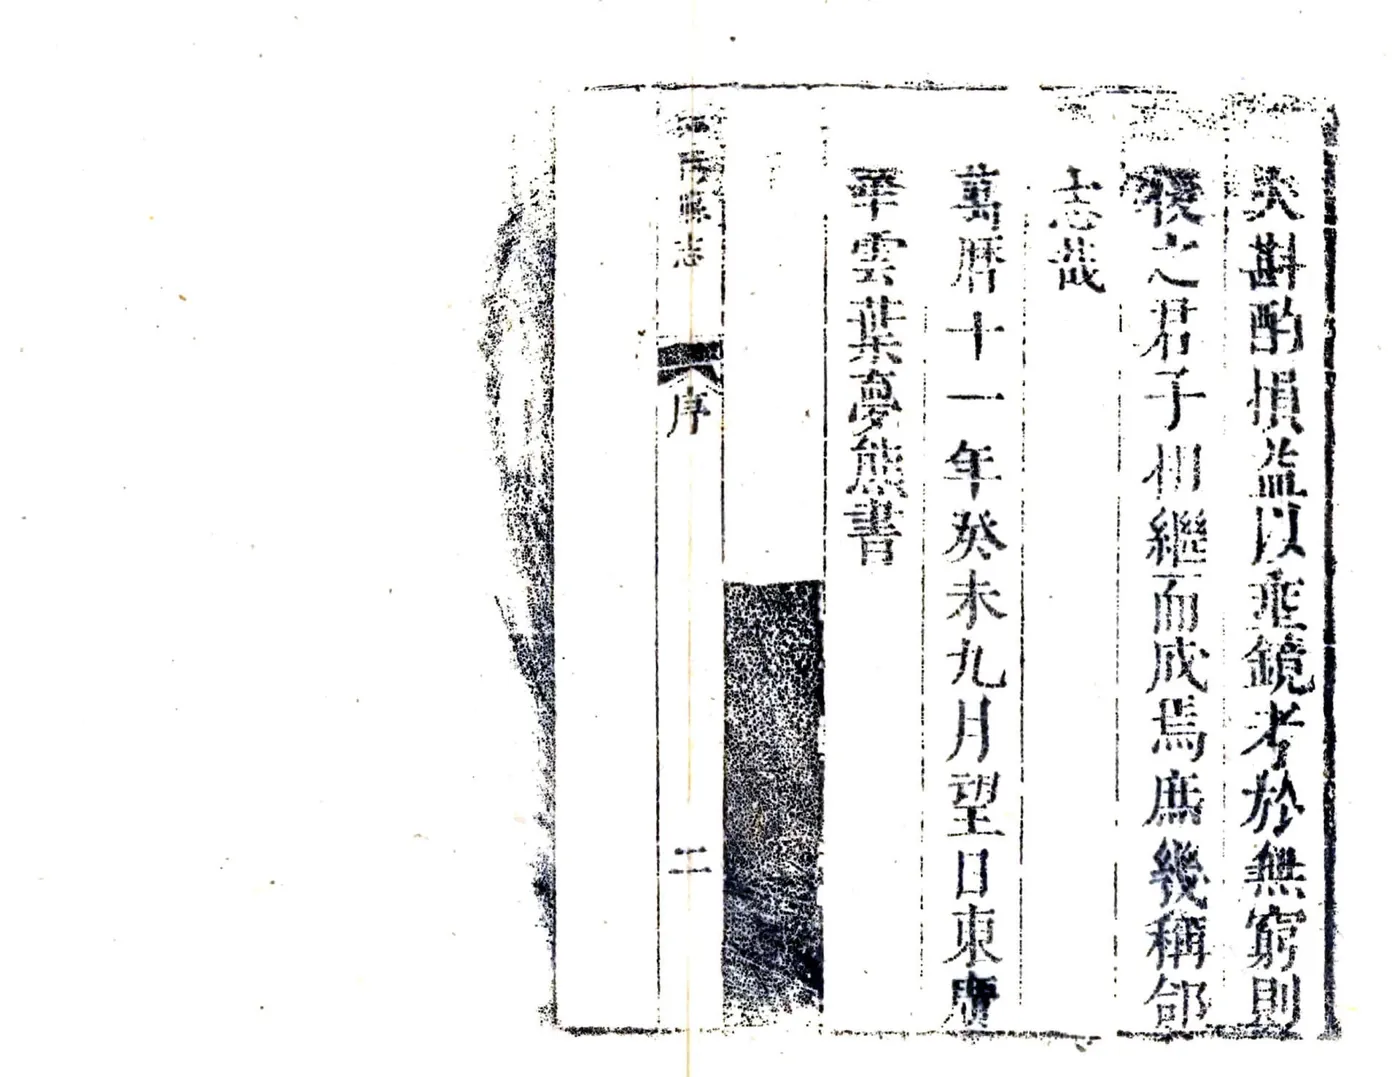 矣斟酌損益以垂鏡考於無窮則
後之君子相繼而成焉庶幾稱郃
志哉
萬曆十一年癸未九月望日東廣
華雲葉夢熊書
縣志
序
二